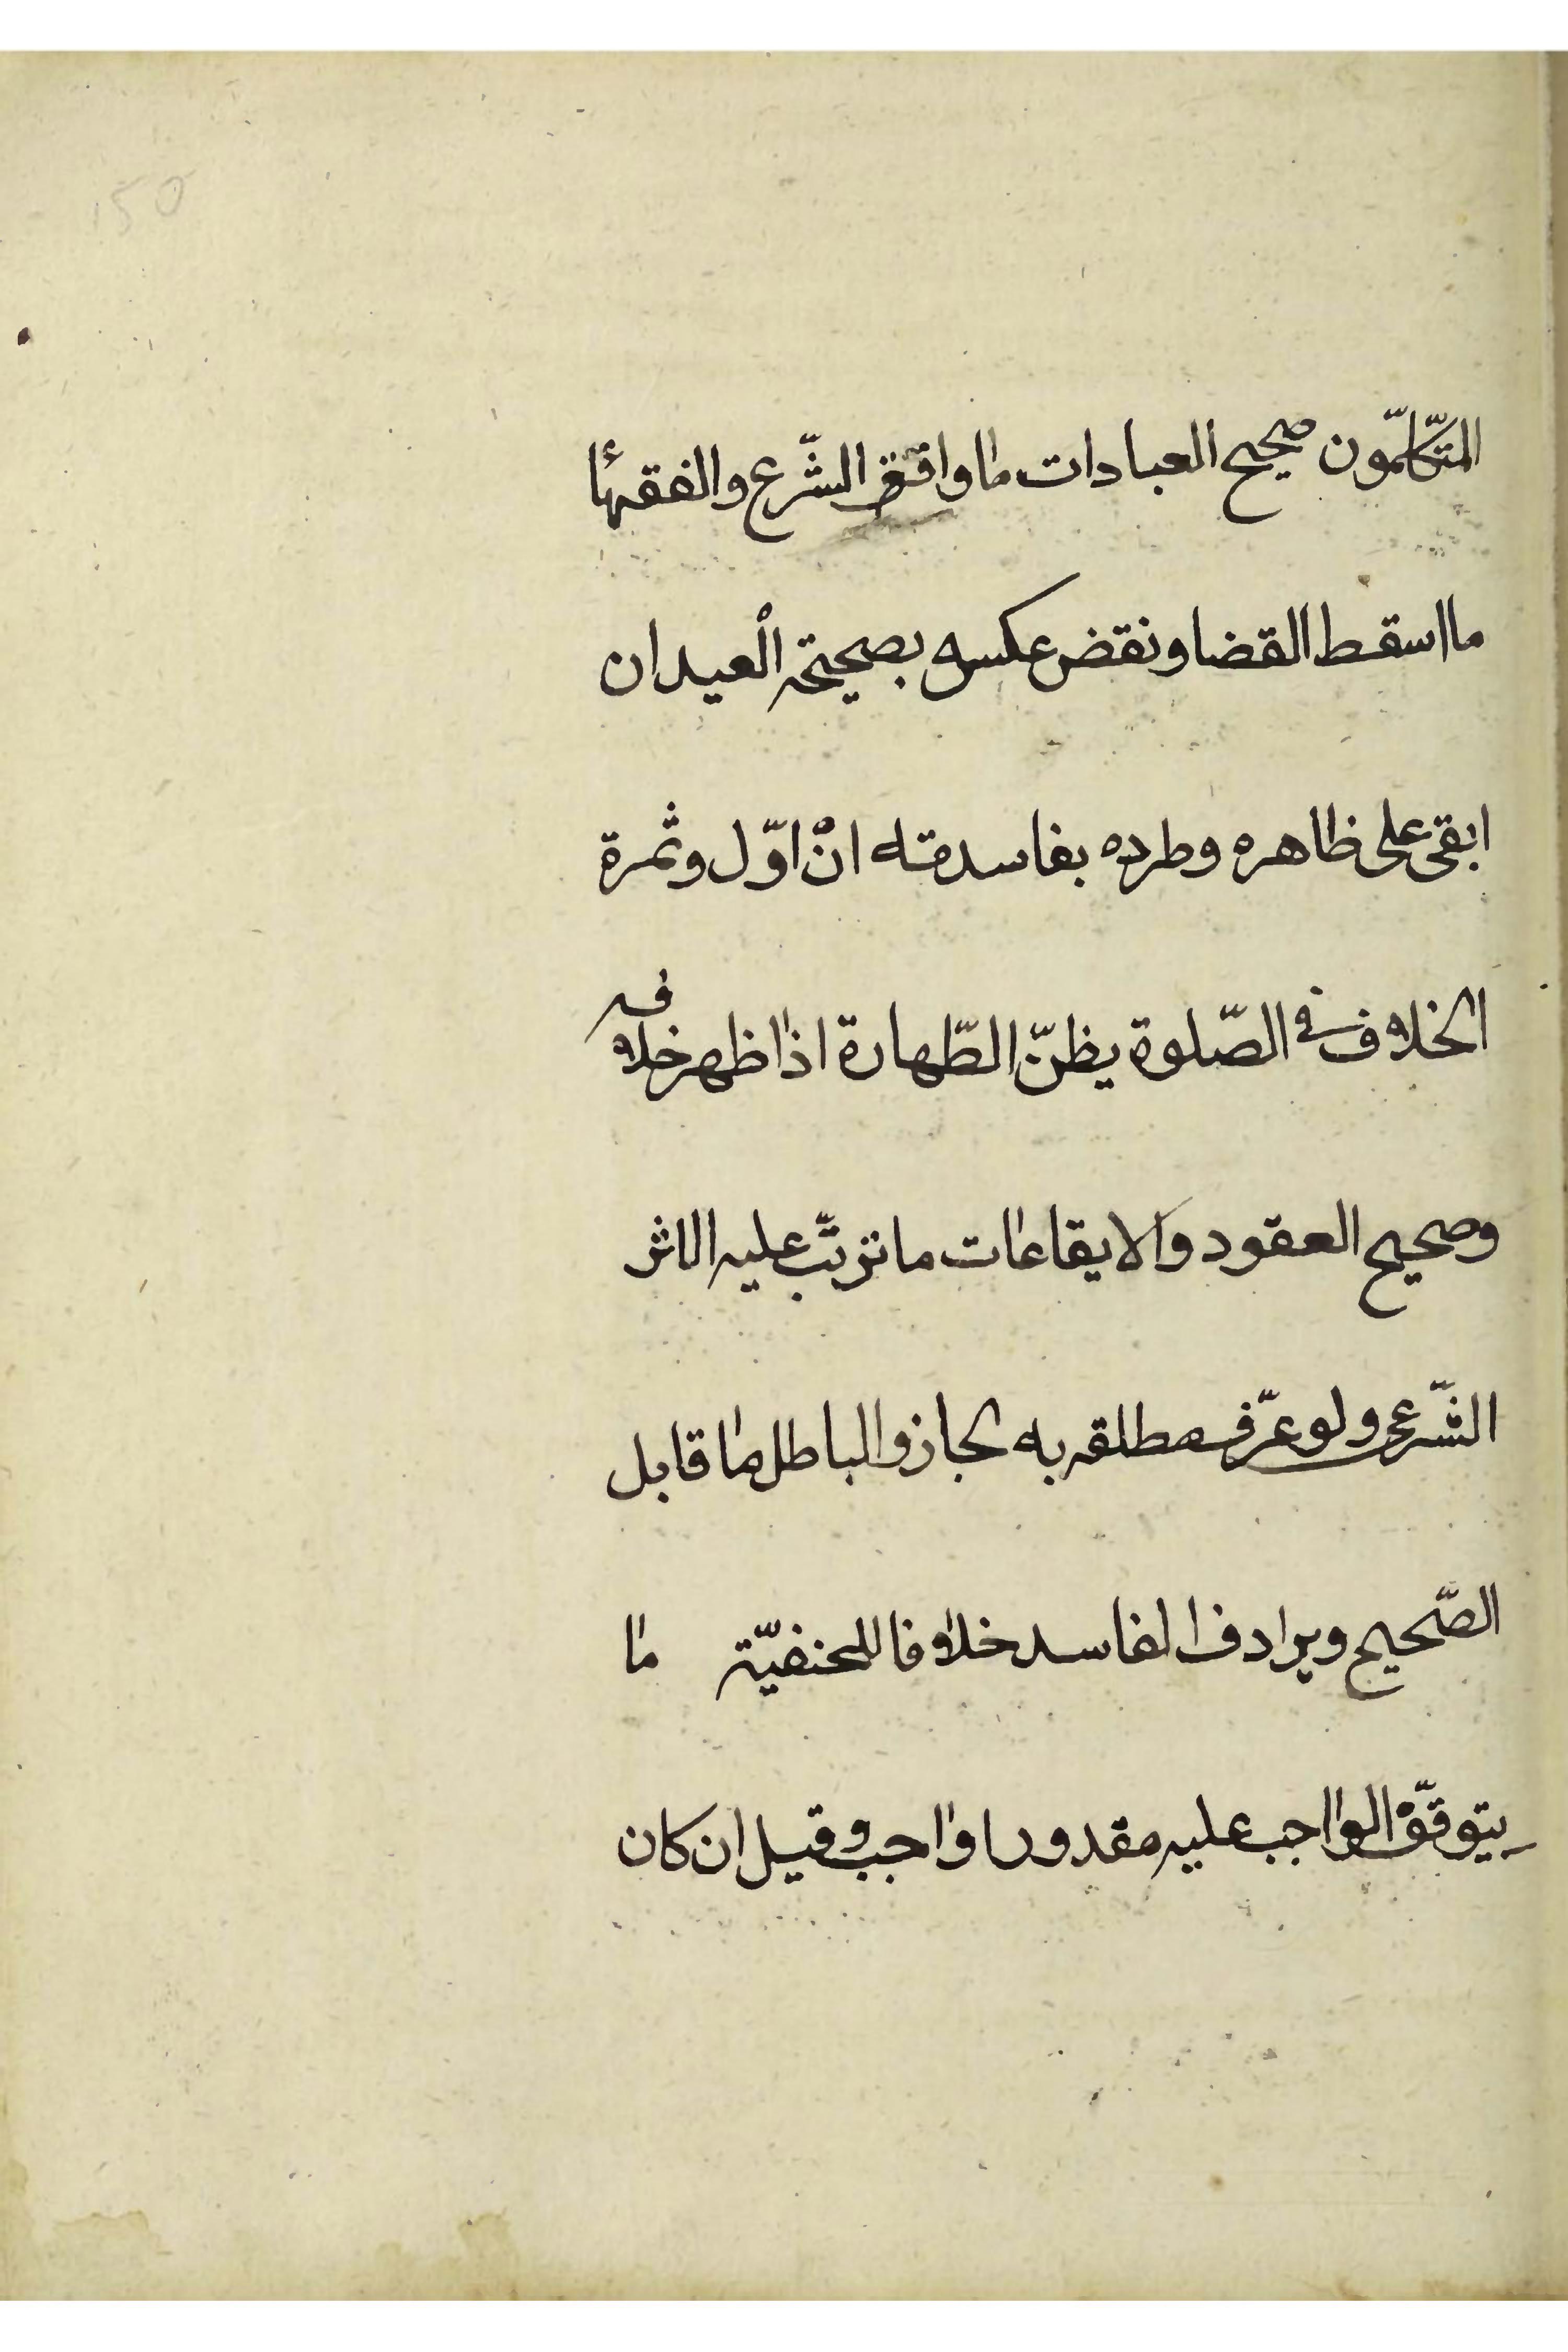 ١٥٥
المتكلّمون صحيح العبادات ما وافق الشّرع والفقهأ
ما اسقط القضا ونقض عكسه بصحيحة العيد ان
ابقى على ظاهره وطرده بفاسدته ان اوّل وثمرة
الخلاف في الصّلوة بظنّ الطّهارة اذا ظهر خلافه
وصحيح العقود والايقاعات ما ترتّب عليه الاثر
الشّرعى ولو عرّف مطلقه به لجاز والباطل ما قابل
الصّحيح ويرادف الفاسد خلافا للحنفيّة ما
يتوقّف الواجب عليه مقدورا واجب وقيل ان كان